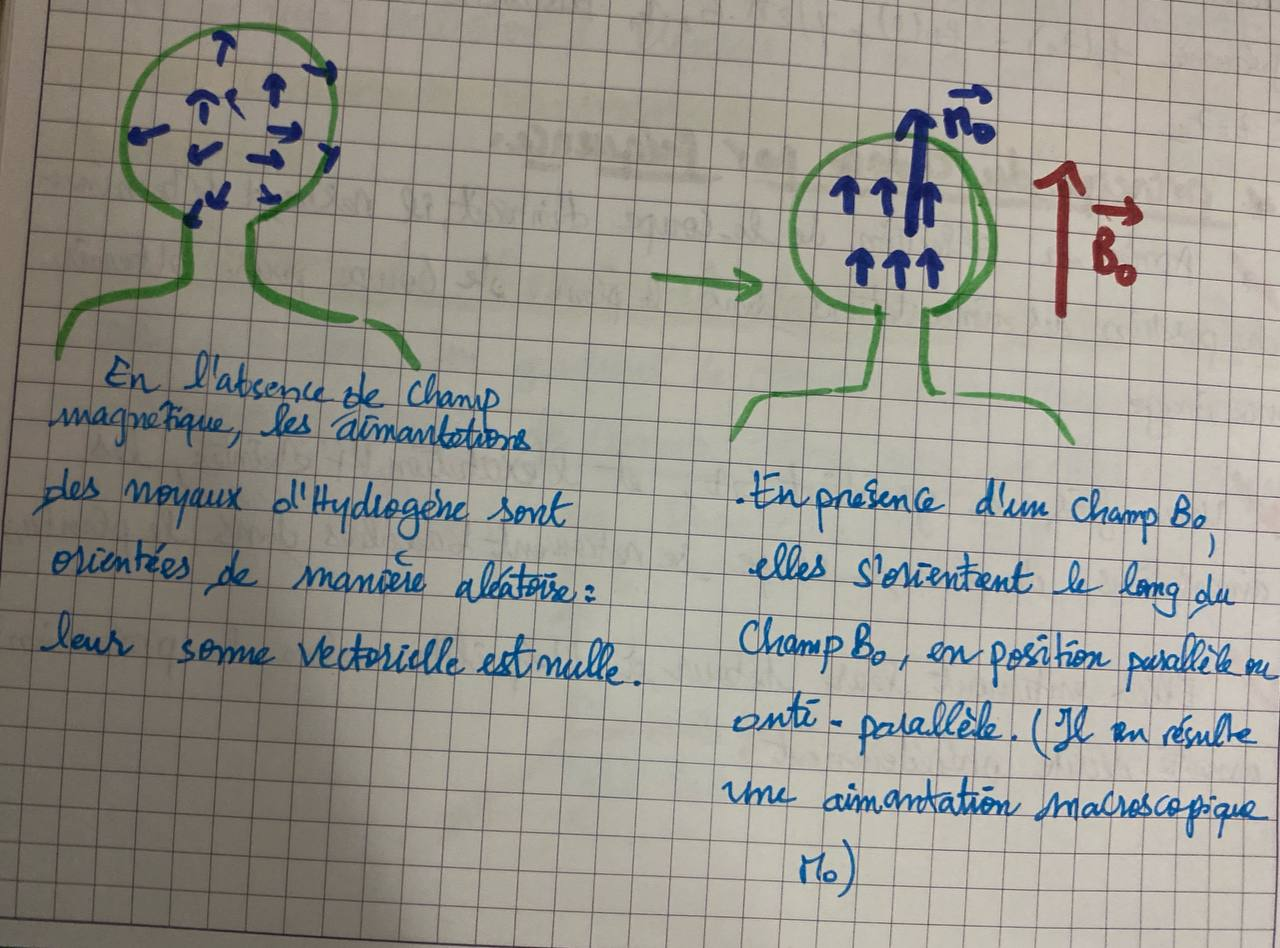 En l'absence de champ
magnétique, les aimantations
des noyaux d'Hydrogène sont
orientées de manière aléatoire :
leur somme vectorielle est nulle.
M₀
B₀
.En présence d'un champ B₀,
elles s'orientent le long du
Champ B₀, en position parallèle ou
anti-parallèle. (Il en résulte
une aimantation macroscopique
M₀)